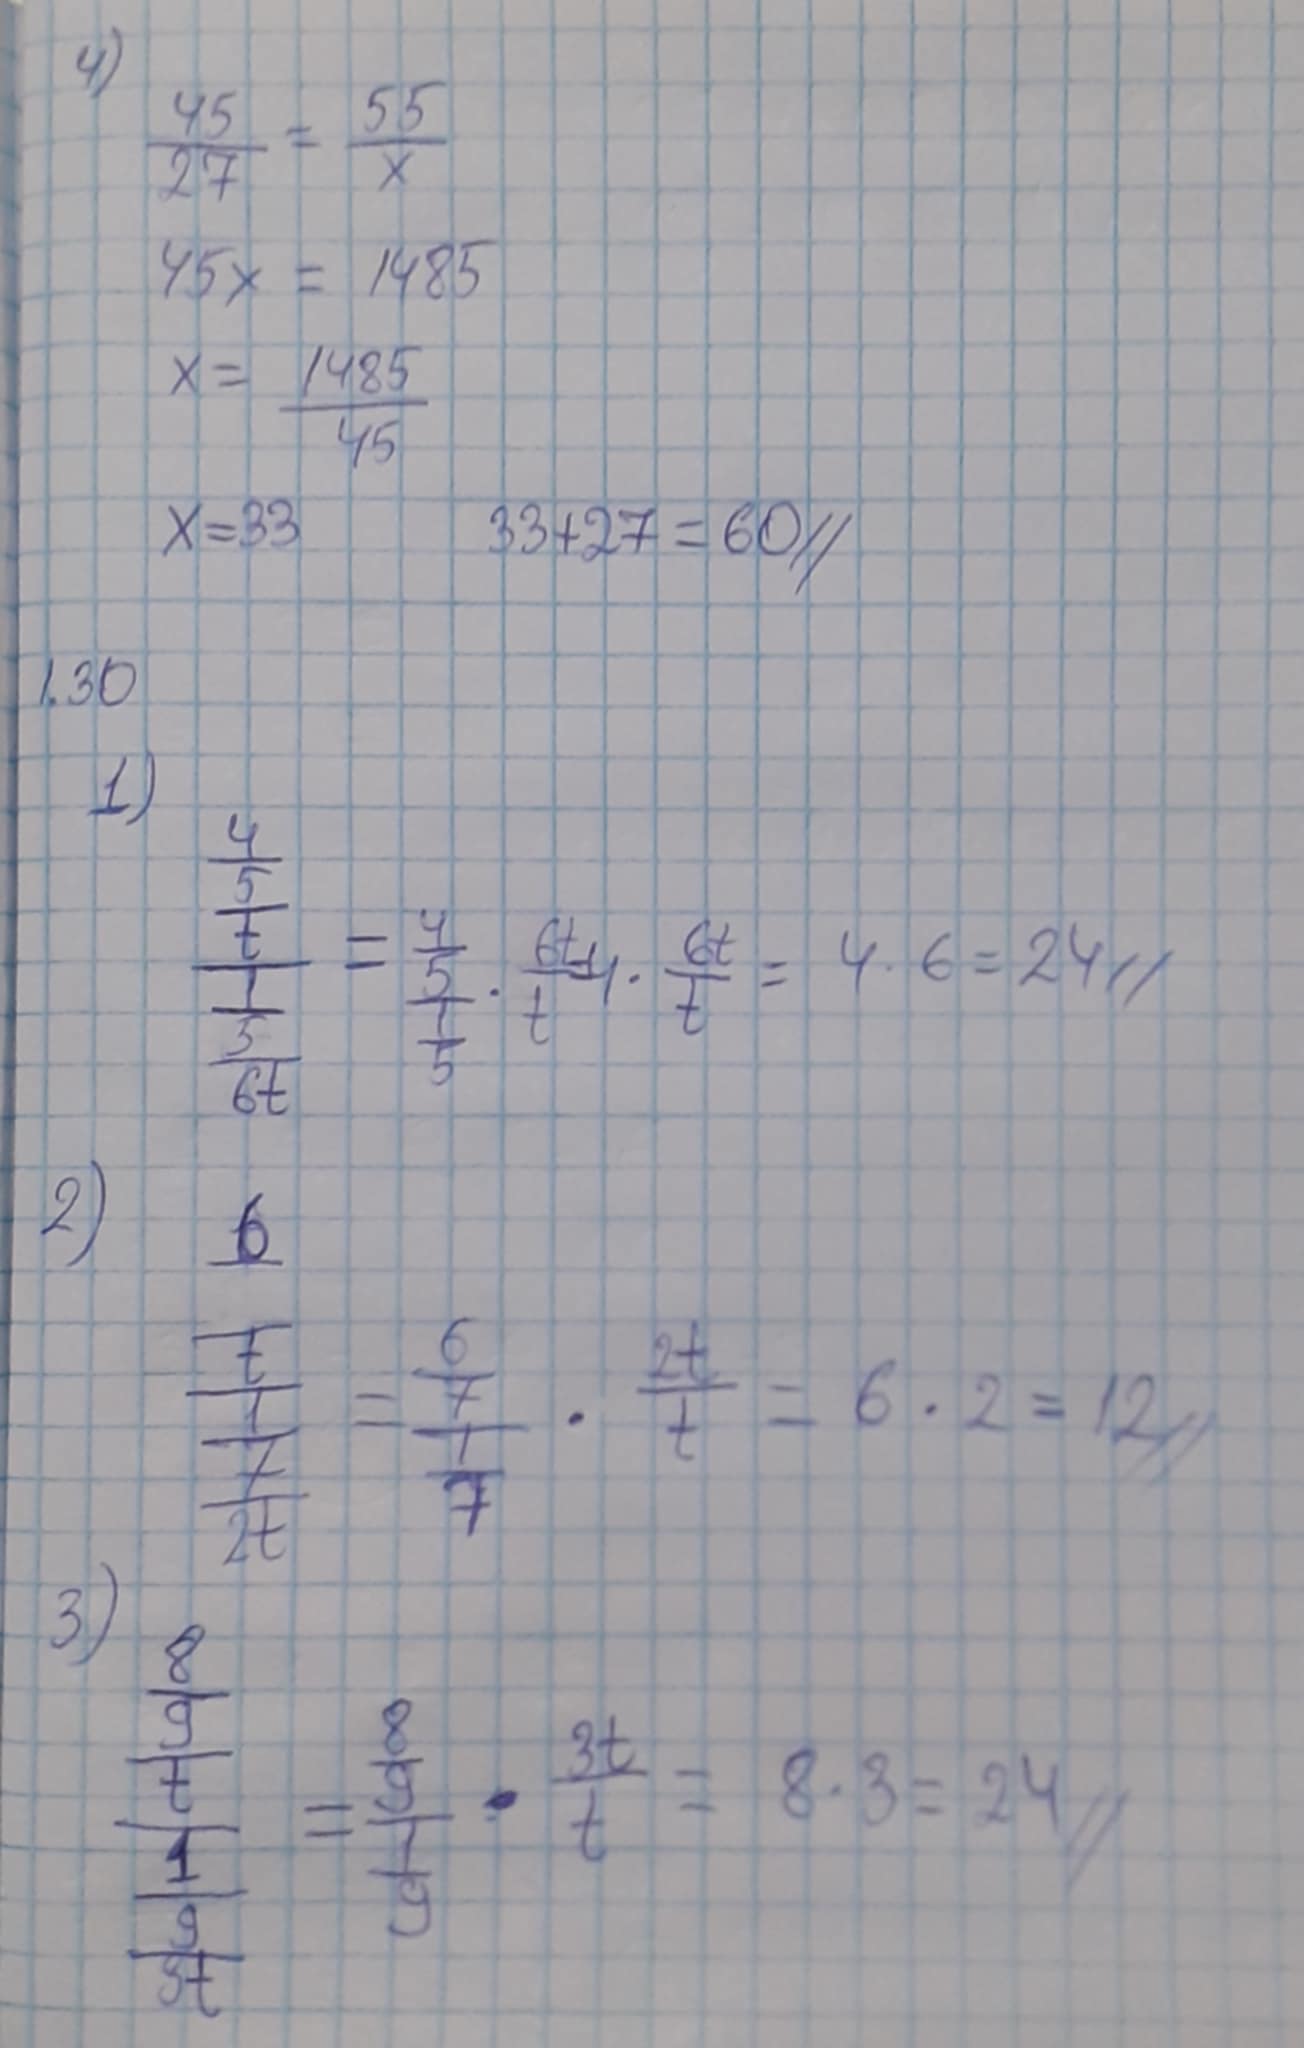 4)
45/27 = 55/x
45x = 1485
x = 1485/45
x=33 33+27=60//
1.30
1)
4/5/t/1/5/6t = 4/5/1/5 · 6t/t = 4 · 6t/t = 4 · 6 = 24//
2)
6/t/1/7/2t = 6/7/1/7 · 2t/t = 6 · 2 = 12//
3)
8/9/t/1/9/3t = 8/9/1/9 · 3t/t = 8 · 3 = 24//